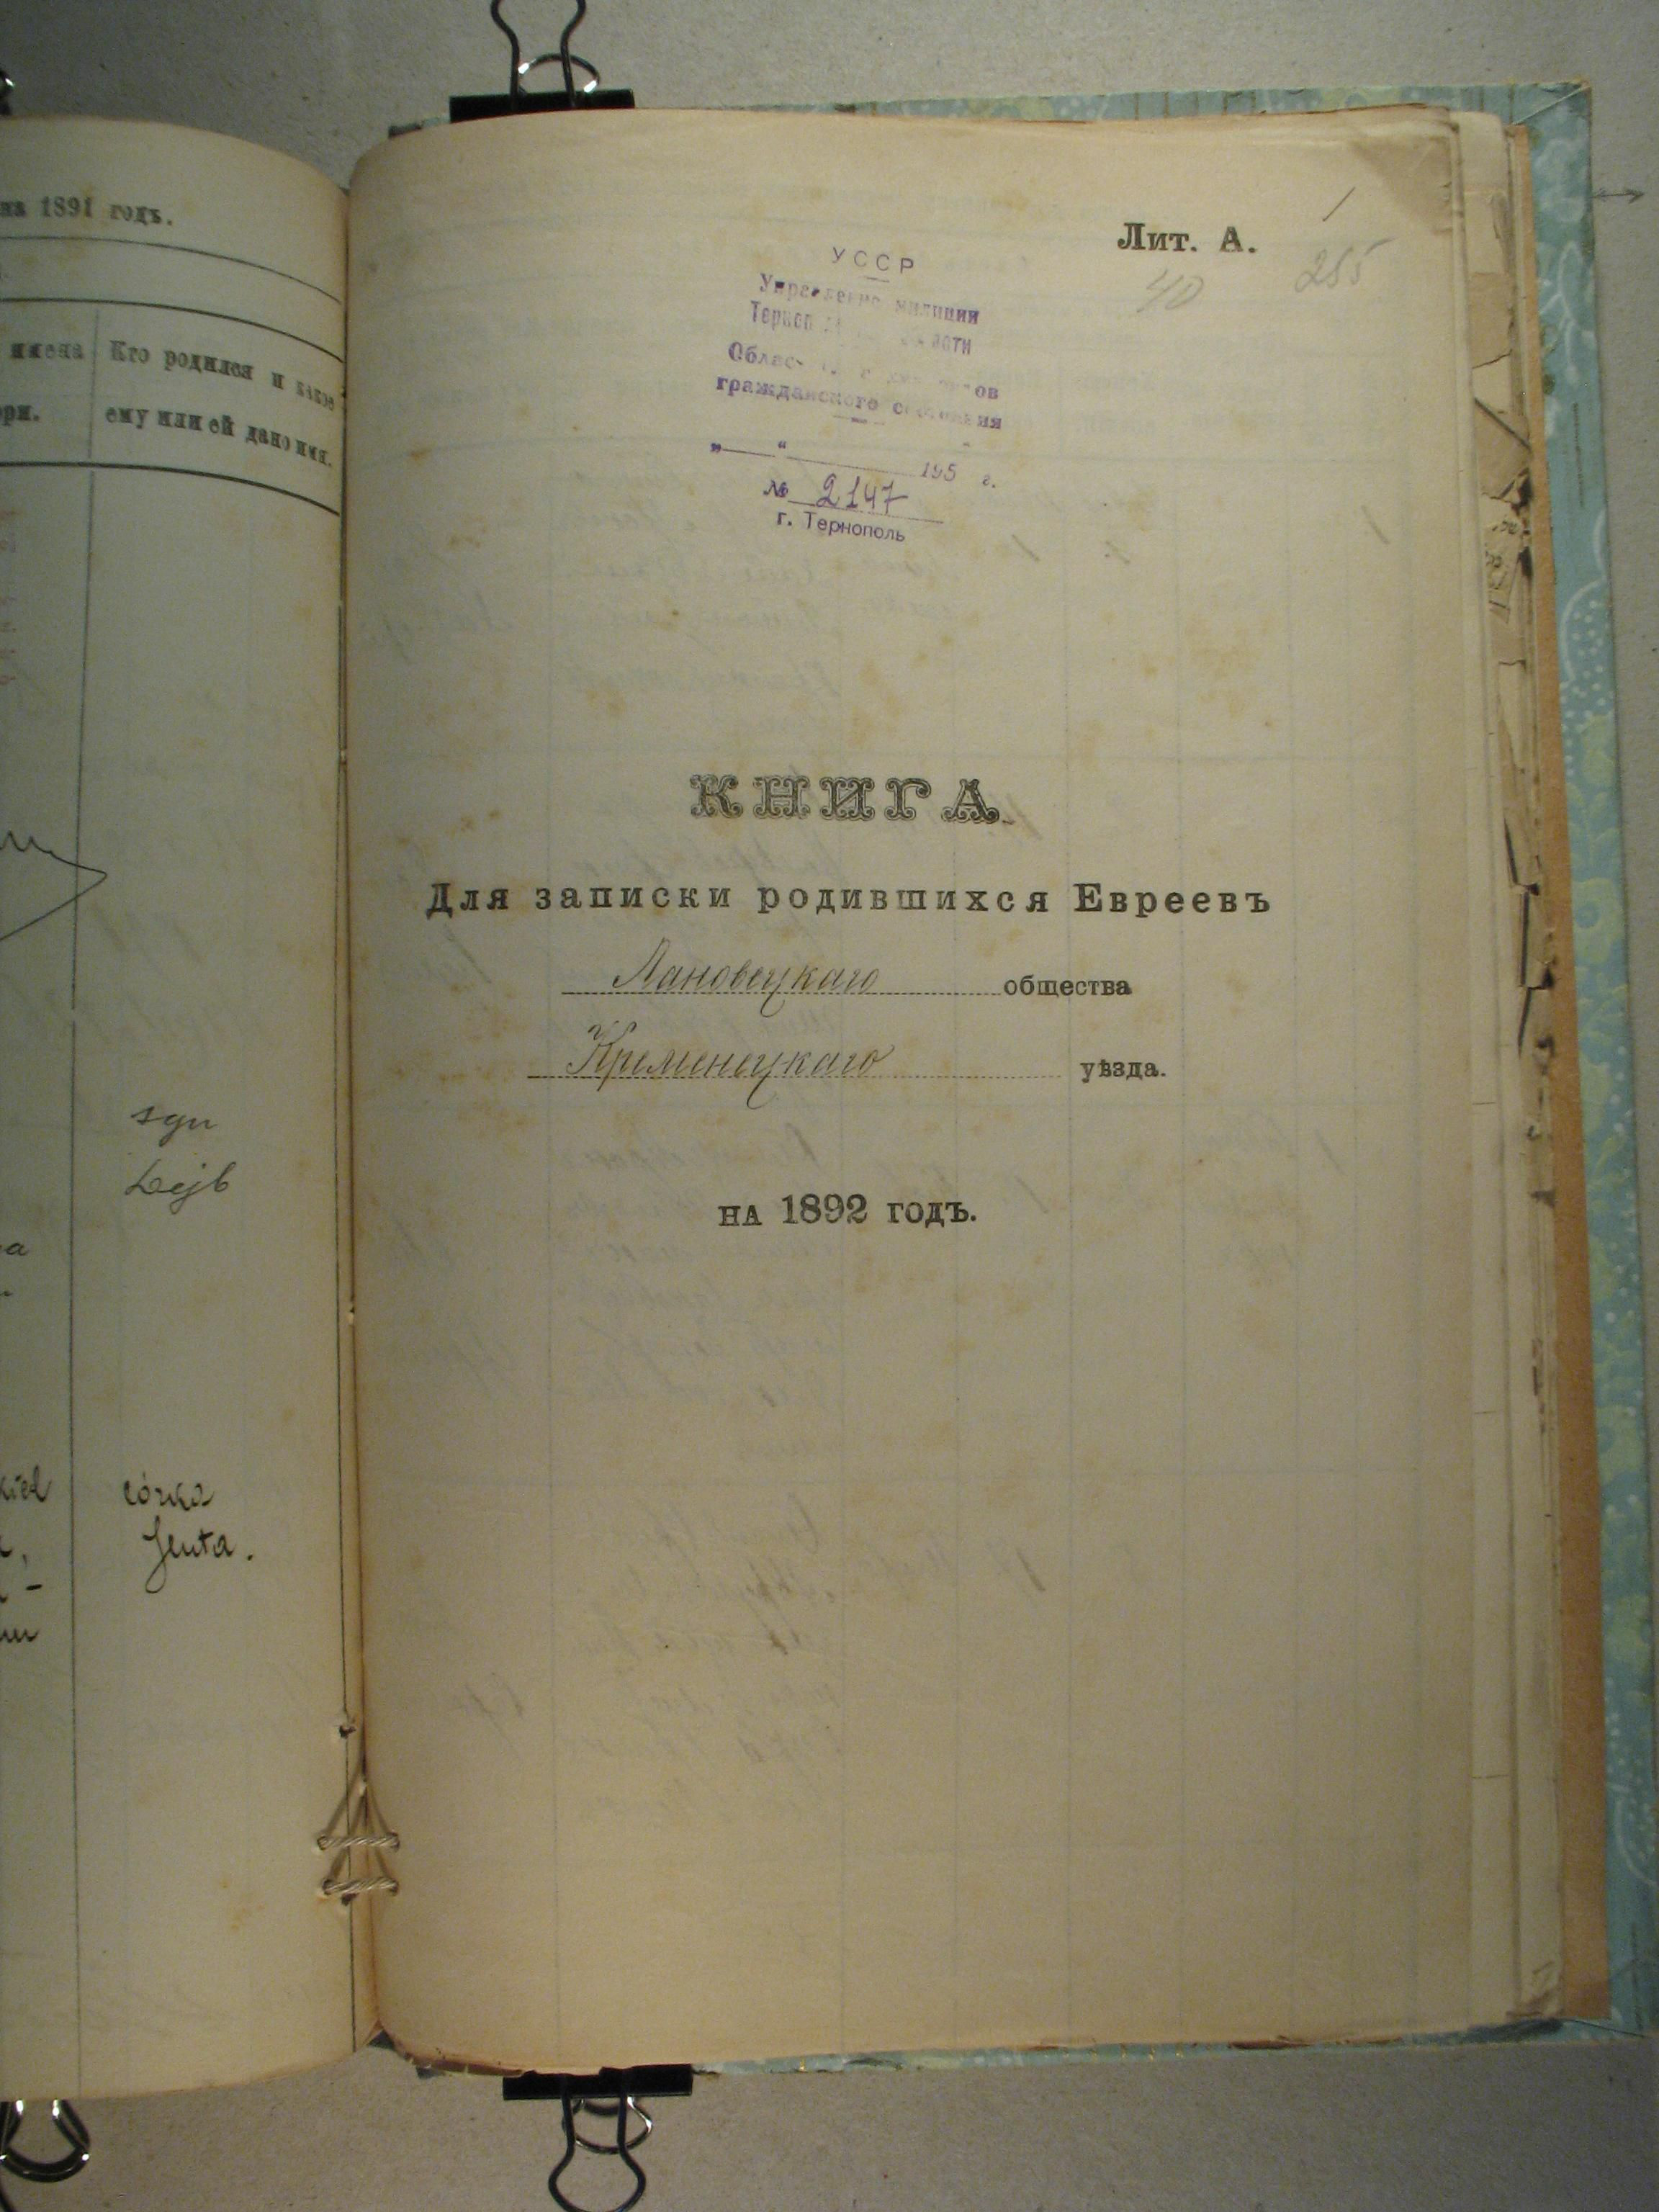 на 1891 годъ.
имена
Кто родился и какое
ему или ей дано имя.
syn
Lejb
córka
Jenta.
Лит. А.
40
255
УССР
Управление милиции
Терноп
Облас
гражданского состояния
„ “ 195 г.
№ 2147
г. Тернополь
КНИГА
Для записки родившихся Евреевъ
Лановецкаго общества
Кременецкаго уѣзда.
на 1892 годъ.